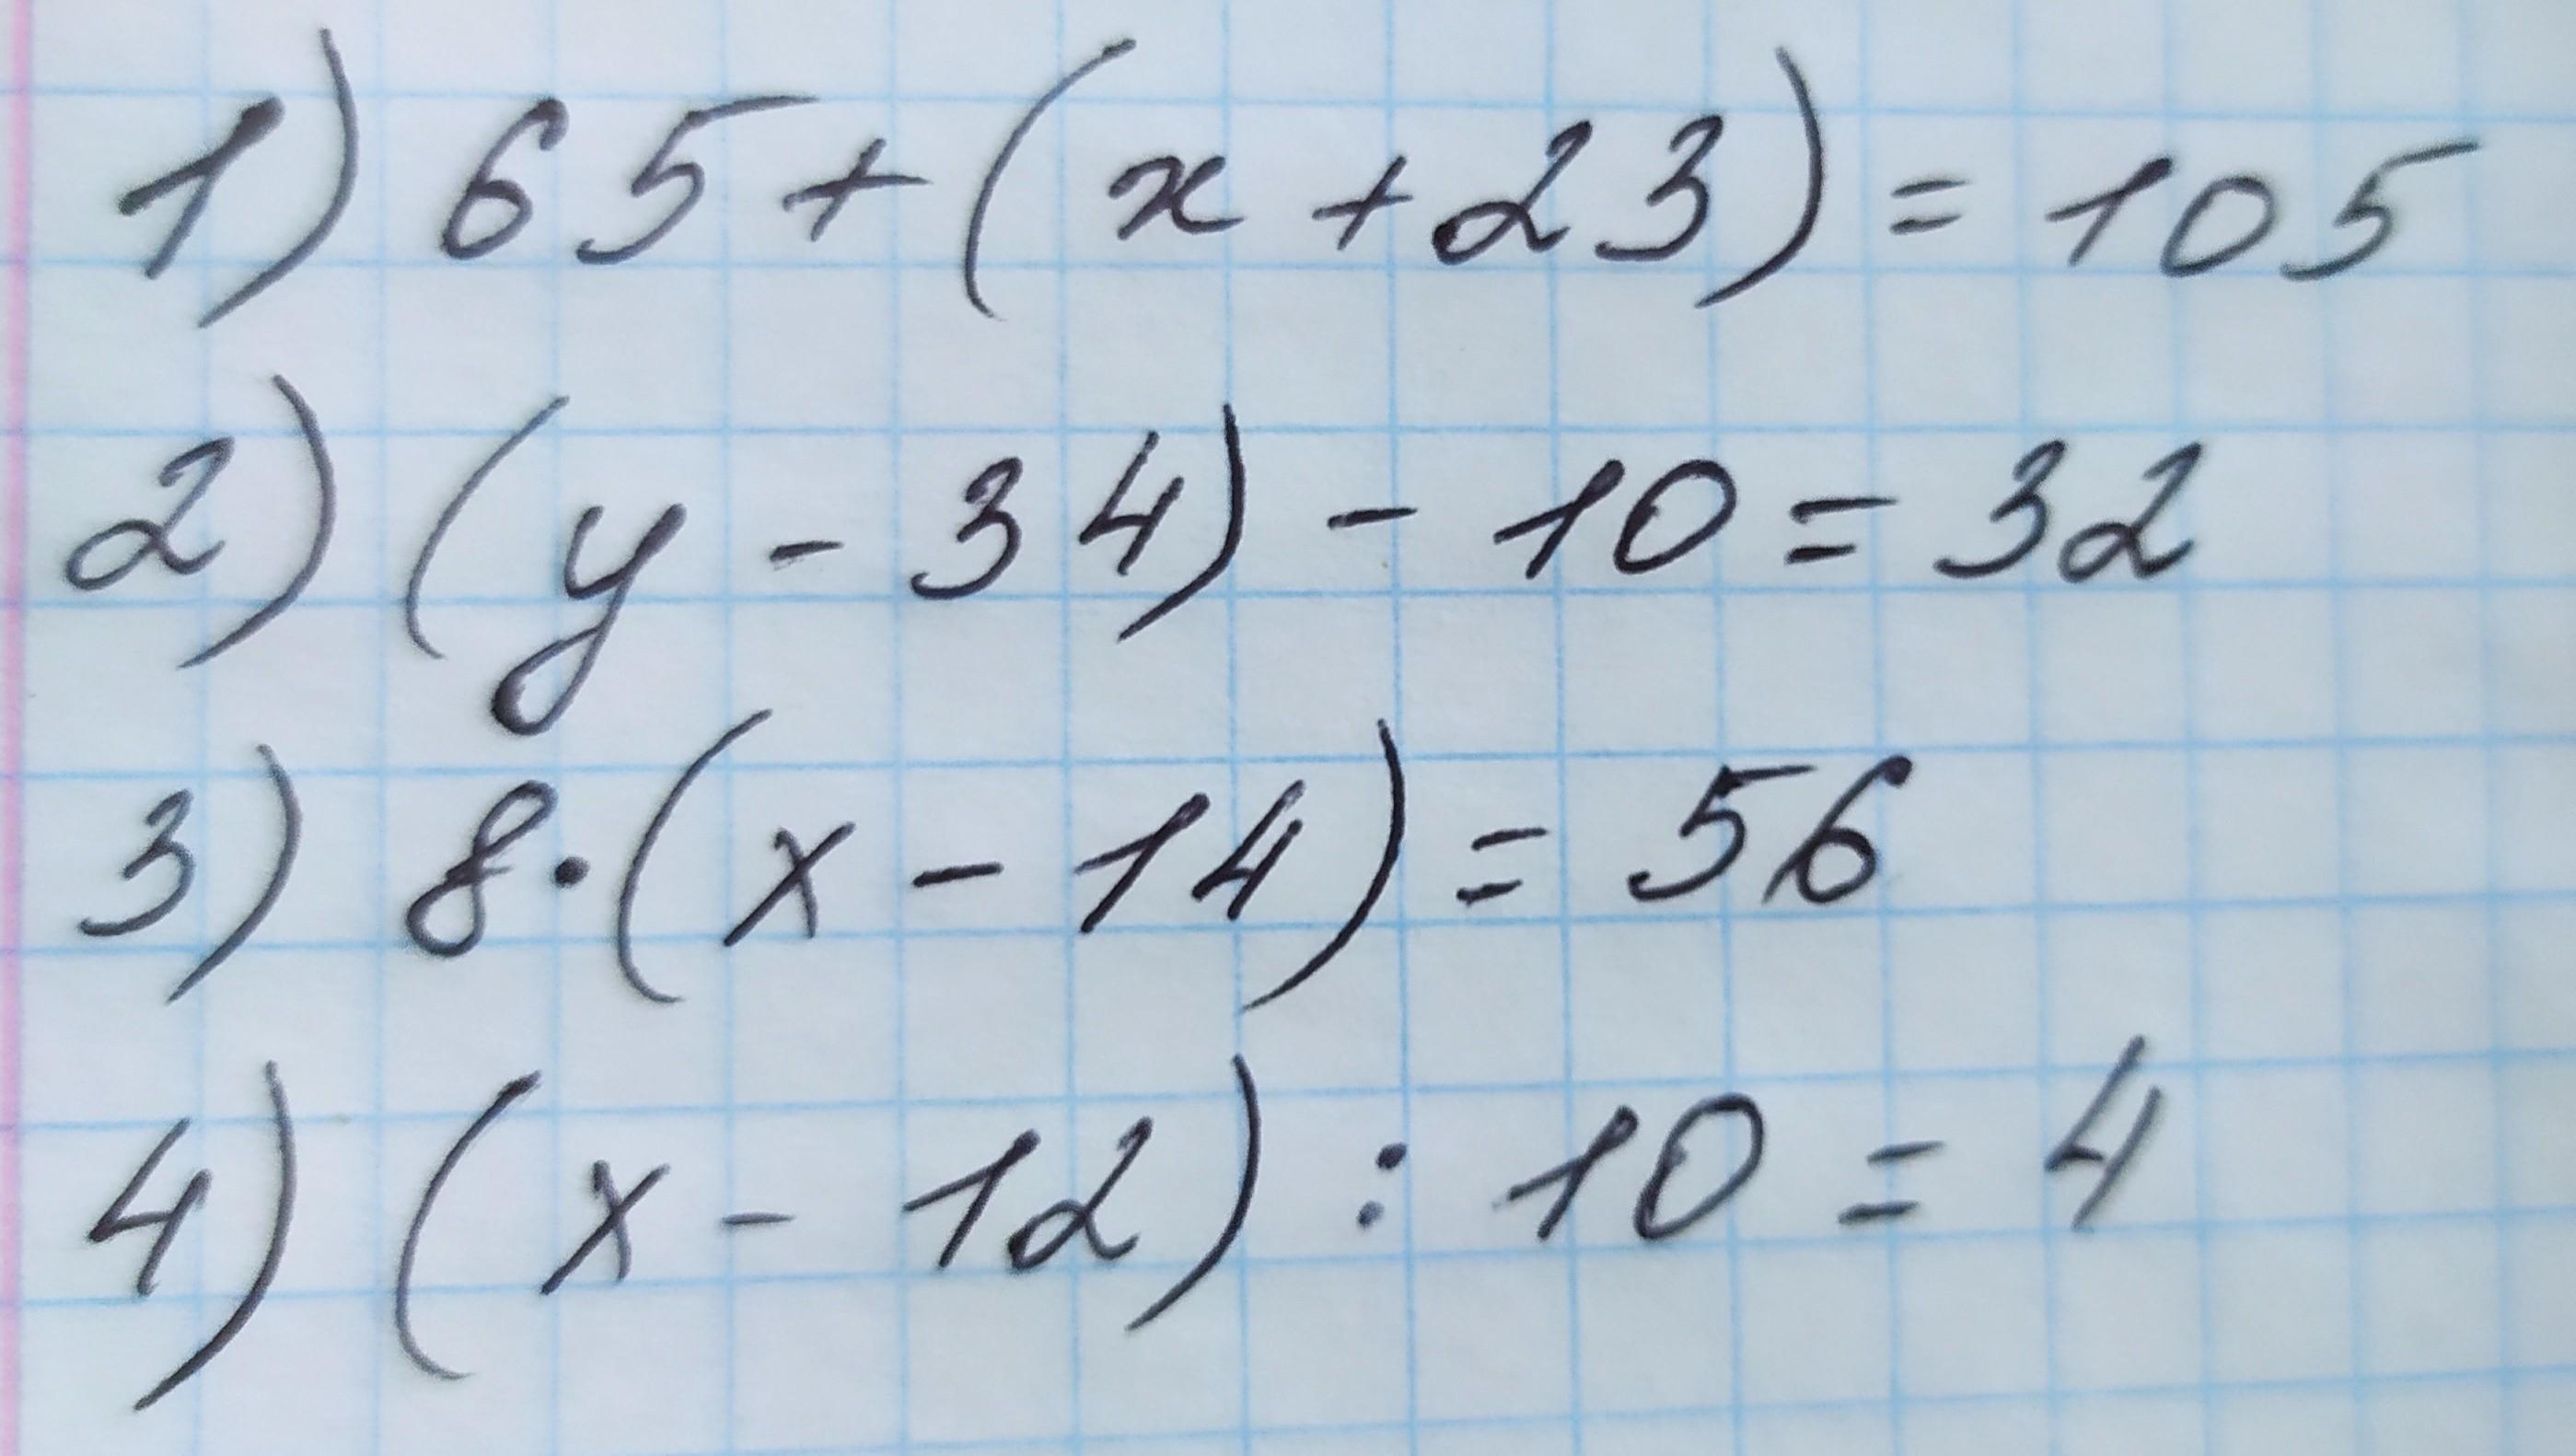 1) 65 + (x + 23) = 105
2) (y - 34) - 10 = 32
3) 8 · (x - 14) = 56
4) (x - 12) : 10 = 4